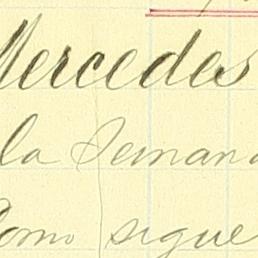 Mercedes
la semana
Como sigue